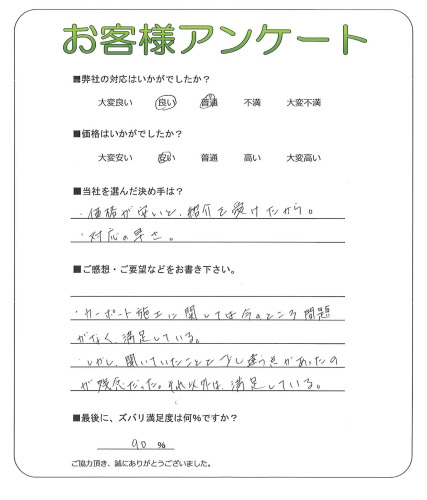 お客様アンケート
■弊社の対応はいかがでしたか？
大変良い 良い 普通 不満 大変不満
■価格はいかがでしたか？
大変安い 安い 普通 高い 大変高い
■当社を選んだ決め手は？
・価格が安いと、紹介を受けたから。
・対応の早さ。
■ご感想・ご要望などをお書き下さい。
・カーポート施工に関しては今のところ問題
がなく、満足している。
・しかし、聞いていたことと少し違う点があったの
が残念だった。それ以外は、満足している。
■最後に、ズバリ満足度は何％ですか？
90 %
ご協力頂き、誠にありがとうございました。